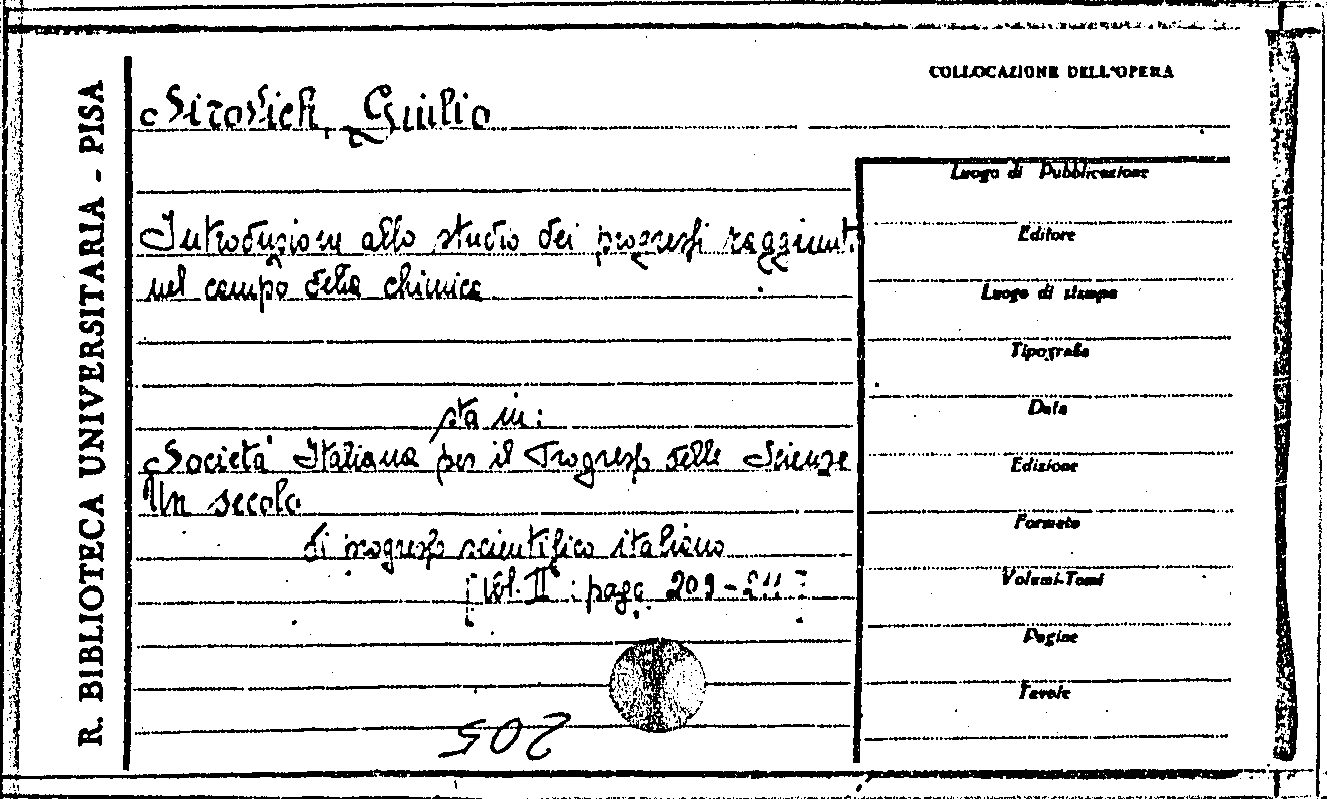 R. BIBLIOTECA UNIVERSITARIA - PISA
COLLOCAZIONE DELL'OPERA
Sirovich, Giulio
Introduzione allo studio dei progressi raggiunti
nel campo della chimica
sta in:
Società Italiana per il Progresso delle Scienze
Un secolo
di progresso scientifico italiano
[Vol. II: pagg. 209-211]
205
Luogo di Pubblicazione
Editore
Luogo di stampa
Tipografia
Data
Edizione
Formato
Volumi-Tomi
Pagine
Tavole